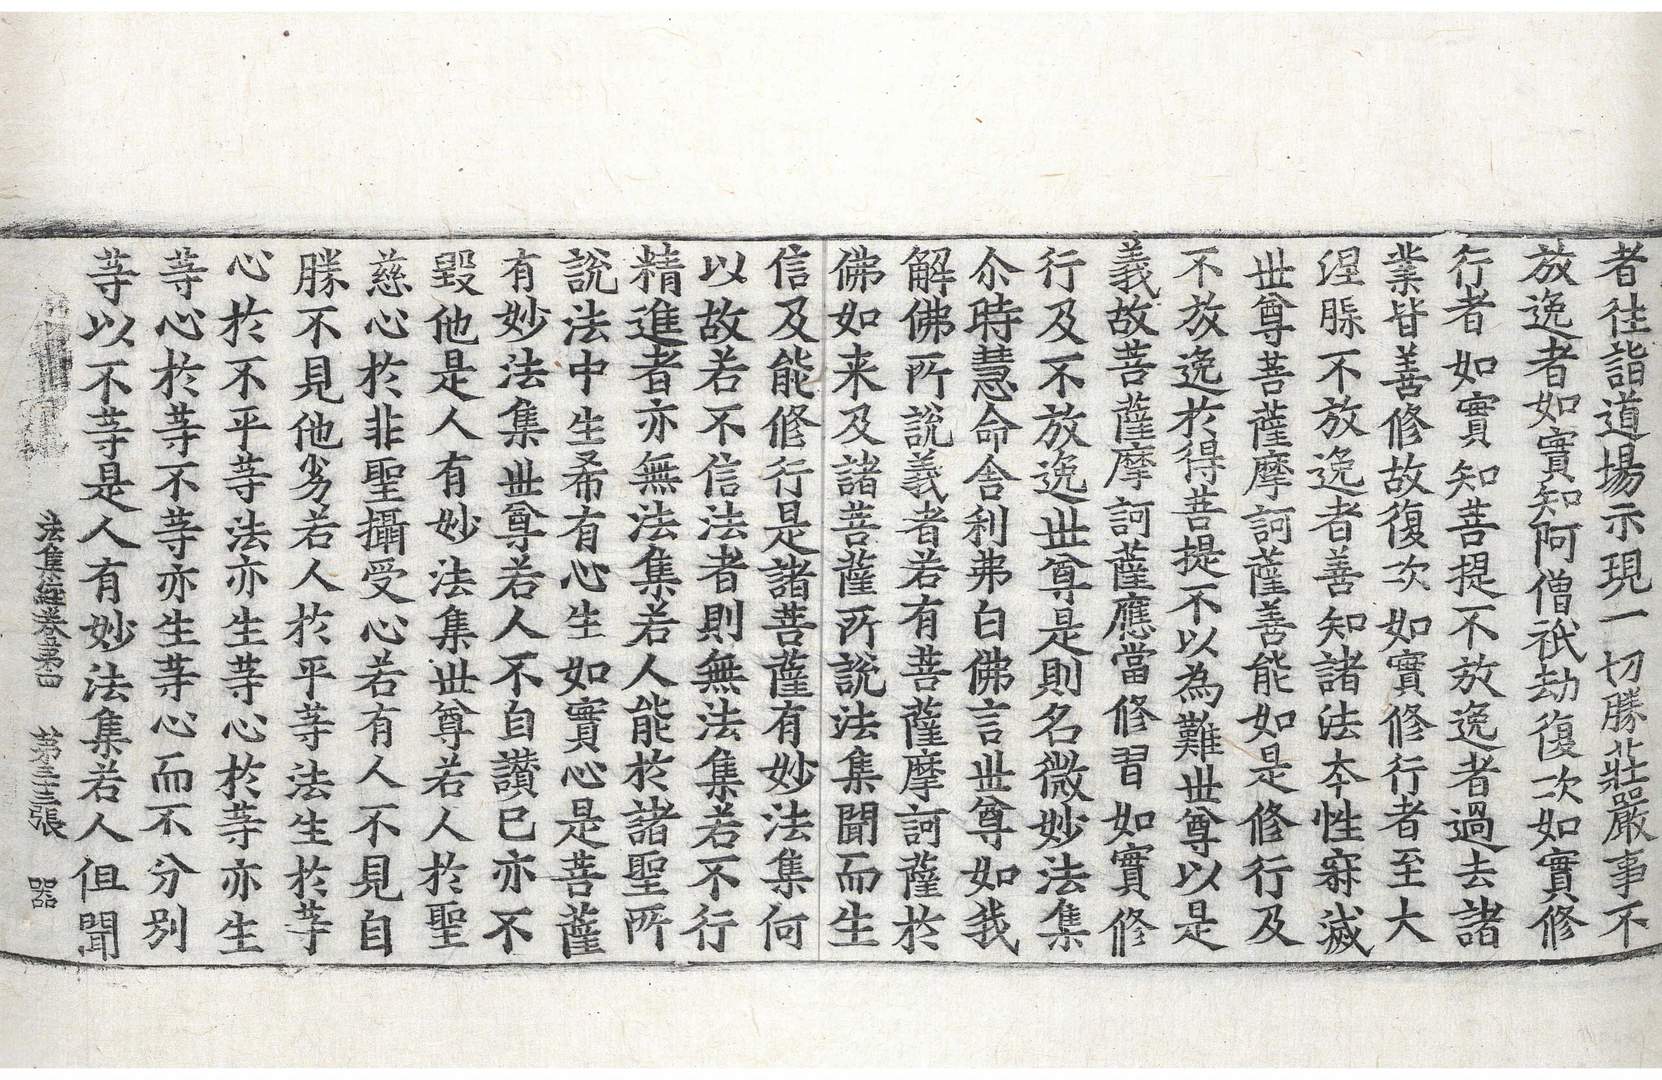 者往詣道場示現一切勝莊嚴事不
放逸者如實知阿僧祇劫復次如實修
行者如實知菩提不放逸者過去諸
業皆善修故復次如實修行者至大
涅槃不放逸者善知諸法本性寂滅
世尊菩薩摩訶薩善能如是修行及
不放逸於得菩提不以為難世尊以是
義故菩薩摩訶薩應當修習如實修
行及不放逸世尊是則名微妙法集
尒時慧命舍利弗白佛言世尊如我
解佛所說義者若有菩薩摩訶薩於
佛如来及諸菩薩所說法集聞而生
信及能修行是諸菩薩有妙法集何
以故若不信法者則無法集若不行
精進者亦無法集若人能於諸聖所
說法中生希有心生如實心是菩薩
有妙法集世尊若人不自讚己亦不
毀他是人有妙法集世尊若人於聖
慈心於非聖攝受心若有人不見自
勝不見他劣若人於平等法生於等
心於不平等法亦生等心於等亦生
等心於等不等亦生等心而不分別
等以不等是人有妙法集若人但聞
法集經卷第四 第三十三張 器